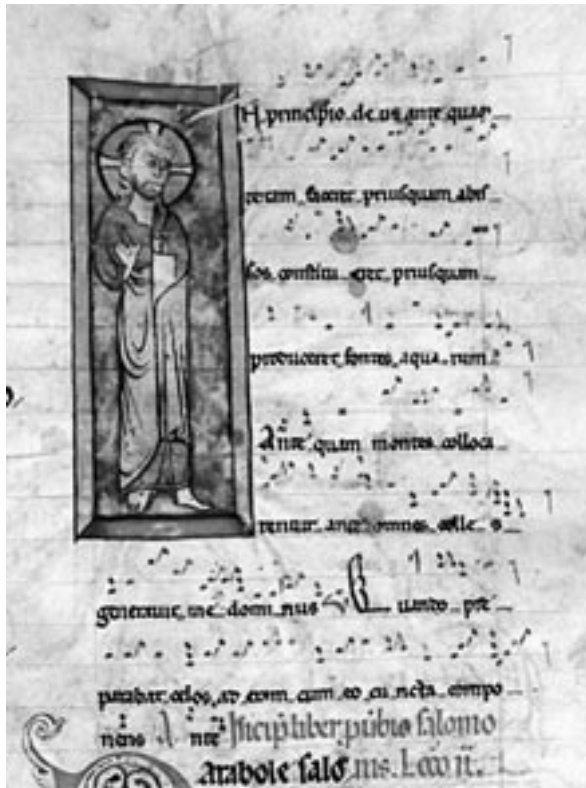 N principio deus antequam
terram faceret priusquam abis
sos constitueret priusquam
produceret fontes aquarum
Antequam montes colloca
rentur ante omnes colles
generavit me dominus Quando pre
parabat celos aderam cum eo cuncta compo
nens Ante Incipit liber
Parabole salo